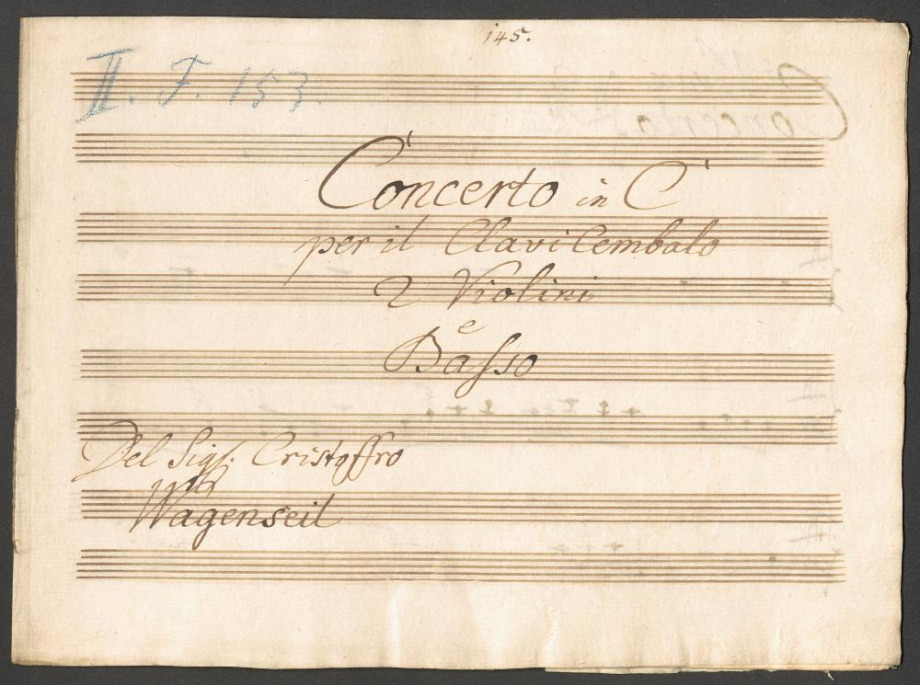 145.
II. F. 153.
Concerto in C
per il Clavi Cembalo
2 Violini
e
Basso
Del Sigr. Cristoffro
Wagenseil